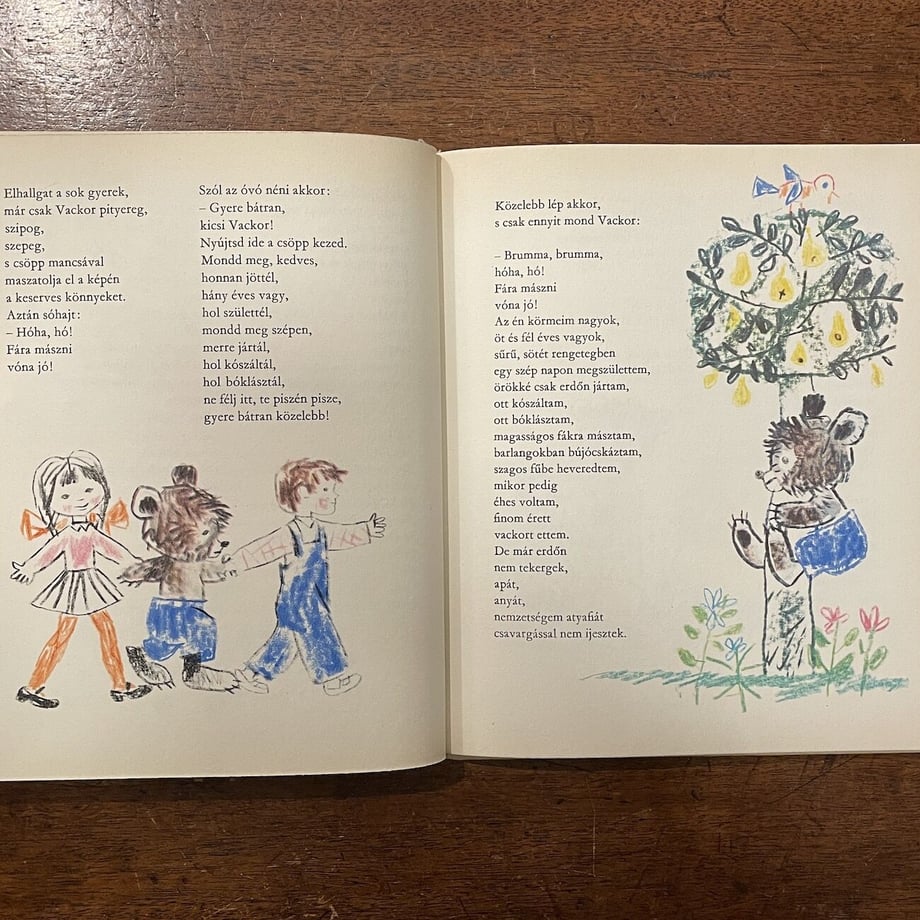 Elhallgat a sok gyerek,
már csak Vackor pityereg,
szipog,
szepeg,
s csöpp mancsával
maszatolja el a képén
a keserves könnyeket.
Aztán sóhajt:
– Hóha, hó!
Fára mászni
vóna jó!
Szól az óvó néni akkor:
– Gyere bátran,
kicsi Vackor!
Nyújtsd ide a csöpp kezed.
Mondd meg, kedves,
honnan jöttél,
hány éves vagy,
hol születtél,
mondd meg szépen,
merre jártál,
hol kószáltál,
hol bóklásztál,
ne félj itt, te piszén pisze,
gyere bátran közelebb!
Közelebb lép akkor,
s csak ennyit mond Vackor:
– Brumma, brumma,
hóha, hó!
Fára mászni
vóna jó!
Az én körmeim nagyok,
öt és fél éves vagyok,
sűrű, sötét rengetegben
egy szép napon megszülettem,
örökké csak erdőn jártam,
ott kószáltam,
ott bóklásztam,
magasságos fákra másztam,
barlangokban bújócskáztam,
szagos fűbe heveredtem,
mikor pedig
éhes voltam,
finom érett
vackort ettem.
De már erdőn
nem tekergek,
apát,
anyát,
nemzetségem atyafiát
csavargással nem ijesztek.